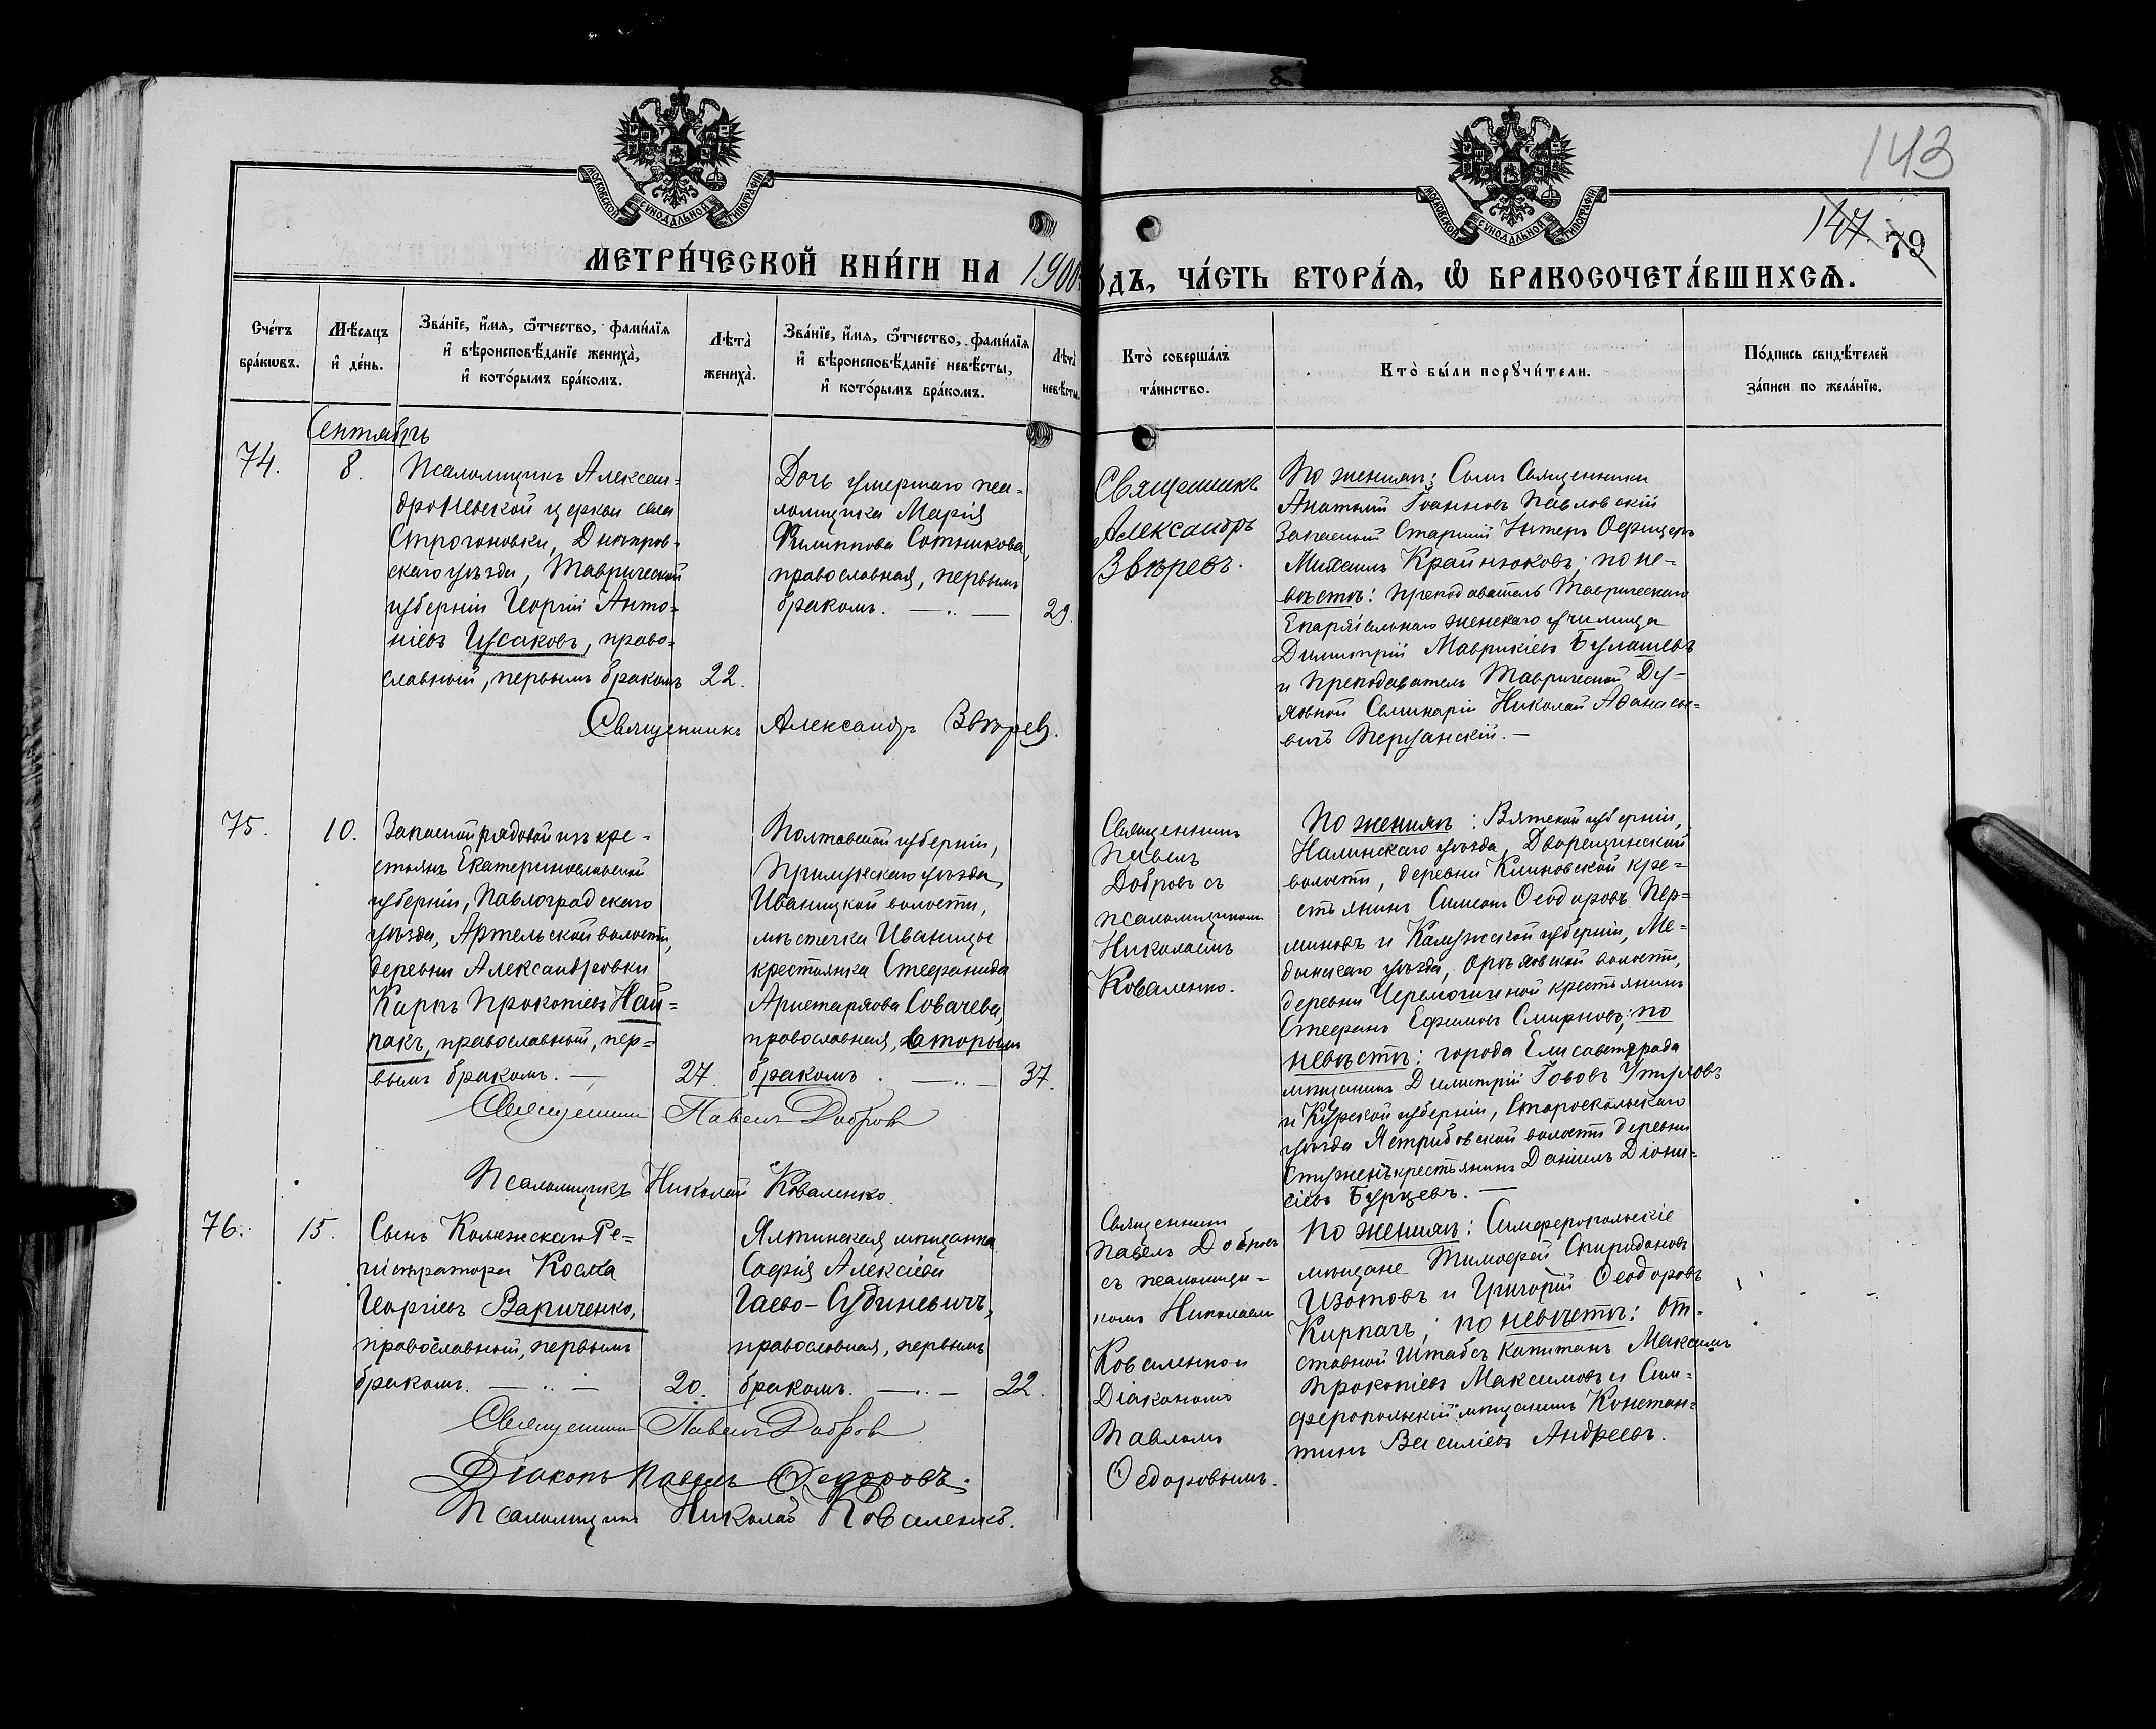 143
147. 79
МОСКОВСКОЙ СУНОДАЛЬНОЙ ТИПОГРАФІИ
МОСКОВСКОЙ СУНОДАЛЬНОЙ ТИПОГРАФІИ
МЕТРИ́ЧЕСКОЙ КНИ́ГИ НА 1900
О́ДЪ, ЧА́СТЬ ВТОРА́Я, Ѿ БРАКОСОЧЕТА́ВШИХСЯ.
Сче́тъ бра́кѡвъ.
Мѣ́сяцъ и҆ де́нь.
Зва́нїе, и҆́мя, ѻ҆́тчество, фами́лїя
и҆ вѣроисповѣ́данїе жениха̀,
и҆ кото́рымъ бра́комъ.
Лѣта̀ жениха̀.
Зва́нїе, и҆́мя, ѻ҆́тчество, фами́лїя
и҆ вѣроисповѣ́данїе невѣ́сты,
и҆ кото́рымъ бра́комъ.
Лѣта̀ невѣ́сты
Кто̀ соверша́лъ
та́инство.
Кто̀ бы́ли порꙋчи́тели.
По́дпись свидѣ́телей
за́писи по жела́нїю.
Сентябрь
74.
8.
Псаломщикъ Алексан-
дроневской церкви села
Строгоновки, Днѣпров-
скаго уѣзда, Таврической
губерніи Георгій Анто-
ніевъ Гусаковъ, право-
славный, первымъ бракомъ
22.
Дочь умершаго пса-
ломщика Марія
Филиппова Сотникова,
православная, первымъ
бракомъ. — .. —
29.
Священникъ
Александръ
Звѣревъ.
По женихѣ: Сынъ Священника
Анатолій Іоанновъ Павловскій
Запасный Старшій Унтеръ Офицеръ
Михаилъ Крайнюковъ; по не-
вѣстѣ: преподаватель Таврическаго
Епархіальнаго женскаго училища
Димитрій Маврикіевъ Булашевъ
и преподаватель Таврической Ду-
ховной Семинаріи Николай Афанасье-
вичъ —
Священникъ Александръ Звѣревъ.
75.
10.
Запасной рядовой изъ кре-
стьянъ Екатеринославской
губерніи, Павлоградскаго
уѣзда, Артельской волости,
деревни Александровки
Карпъ Прокопіевъ Най-
пакъ, православный, пер-
вымъ бракомъ. —
27.
Полтавской губерніи,
Прилукскаго уѣзда,
Иваницкой волости,
мѣстечка Иваницы
крестьянка Стефанида
Аристархова Совачева,
православная, вторымъ
бракомъ. — .. —
37.
Священникъ
Павелъ
Добровъ съ
псаломщикомъ
Николаемъ
Коваленко.
По женихѣ: Вятской губерніи,
Налинскаго уѣзда, Дворещинской
волости, деревни Климовской кре-
стьянинъ Симеонъ Ѳеодоровъ Пер-
миновъ и Калужской губерніи, Ме-
дынскаго уѣзда, Орѣховской волости,
деревни крестьянинъ
Стефанъ Ефимовъ Смирновъ; по
невѣстѣ: города Елисаветграда
мѣщанинъ Димитрій
и Курской губерніи, Старооскольскаго
уѣзда Ястрибовской волости деревни
крестьянинъ Даніилъ Діони-
сіевъ Бурцевъ. —
Священникъ Павелъ Добровъ
Псаломщикъ Николай Коваленко.
76.
15.
Сынъ Колежскаго Ре-
гистратора Косма
Георгіевъ Вариченко,
православный, первымъ
бракомъ. — .. —
20.
Ялтинская мѣщанка
Софія Алексіева
Гаево-Судиневичъ,
православная, первымъ
бракомъ. — .. —
22.
Священникъ
Павелъ Добровъ
съ псаломщи-
комъ Николаемъ
Коваленко и
Діакономъ
Павломъ
Ѳедоровымъ.
По женихѣ: Симферопольскіе
мѣщане Тимофей Спиридоновъ
Изотовъ и Григорій Ѳеодоровъ
Кирпачъ; по невѣстѣ: От-
ставной Штабсъ Капитанъ Максимъ
Прокопіевъ Максимовъ и Сим-
феропольскій мѣщанинъ Констан-
тинъ Василіевъ Андреевъ.
Священникъ Павелъ Добровъ
Діаконъ Павелъ Ѳедоровъ.
Псаломщикъ Николай Коваленко.